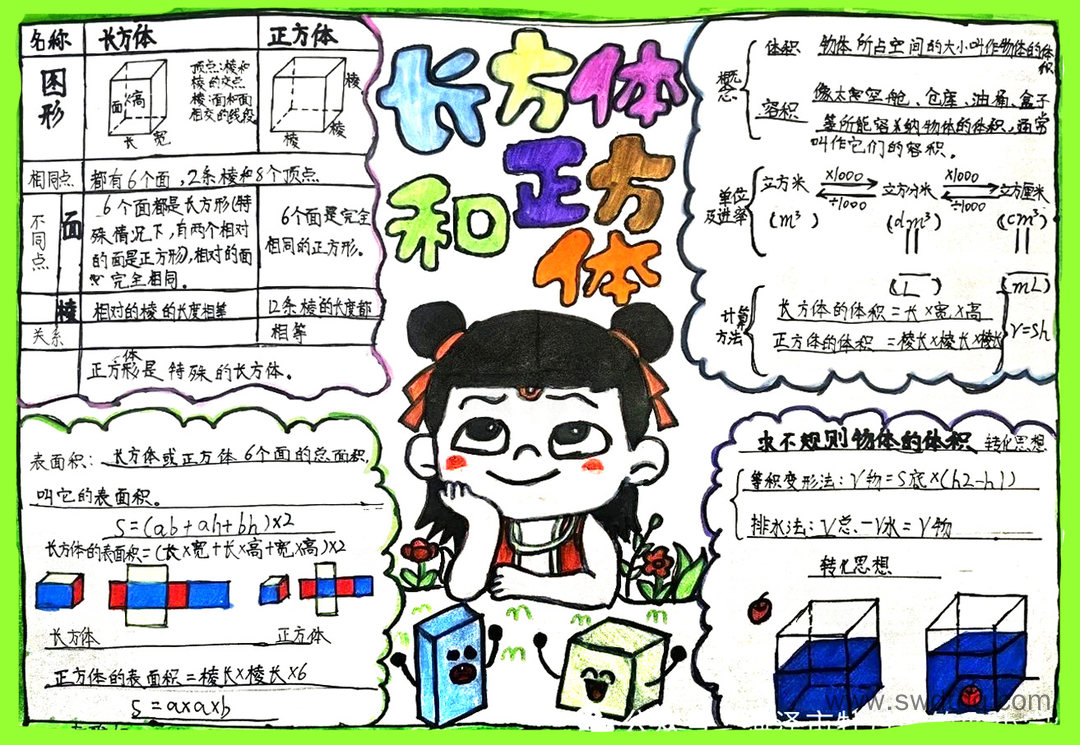 长方体
和正方体
名称 长方体 正方体
图形
顶点:棱和
棱的交点
棱:面和面
相交的线段
面 高
长 宽
棱
棱 棱
相同点 都有6个面,2条棱和8个顶点
不同点 面
6个面都是长方形(特
殊情况下,有两个相对
的面是正方形),相对的面
完全相同。
6个面是完全
相同的正方形。
棱 相对的棱的长度相等 12条棱的长度都
相等
关系
正方形体是特殊的长方体。
概念
体积 物体所占空间的大小叫作物体的体
积
容积 像太空舱、仓库、油桶、盒子
等所能容纳物体的体积,通常
叫作它们的容积。
单位
及进率
立方米 ×1000 ÷1000 立方分米 ×1000 ÷1000 立方厘米
(m³) (dm³) (cm³)
(L) (mL)
计算
方法
长方体的体积=长×宽×高
正方体的体积=棱长×棱长×棱长
V=Sh
表面积:长方体或正方体6个面的总面积
叫它的表面积。
S=(ab+ah+bh)×2
长方体的表面积=(长×宽+长×高+宽×高)×2
长方体 正方体
正方体的表面积=棱长×棱长×6
S=a×a×b
求不规则物体的体积 转化思想
等积变形法:V物=S底×(h2-h1)
排水法:V总-V水=V物
转化思想